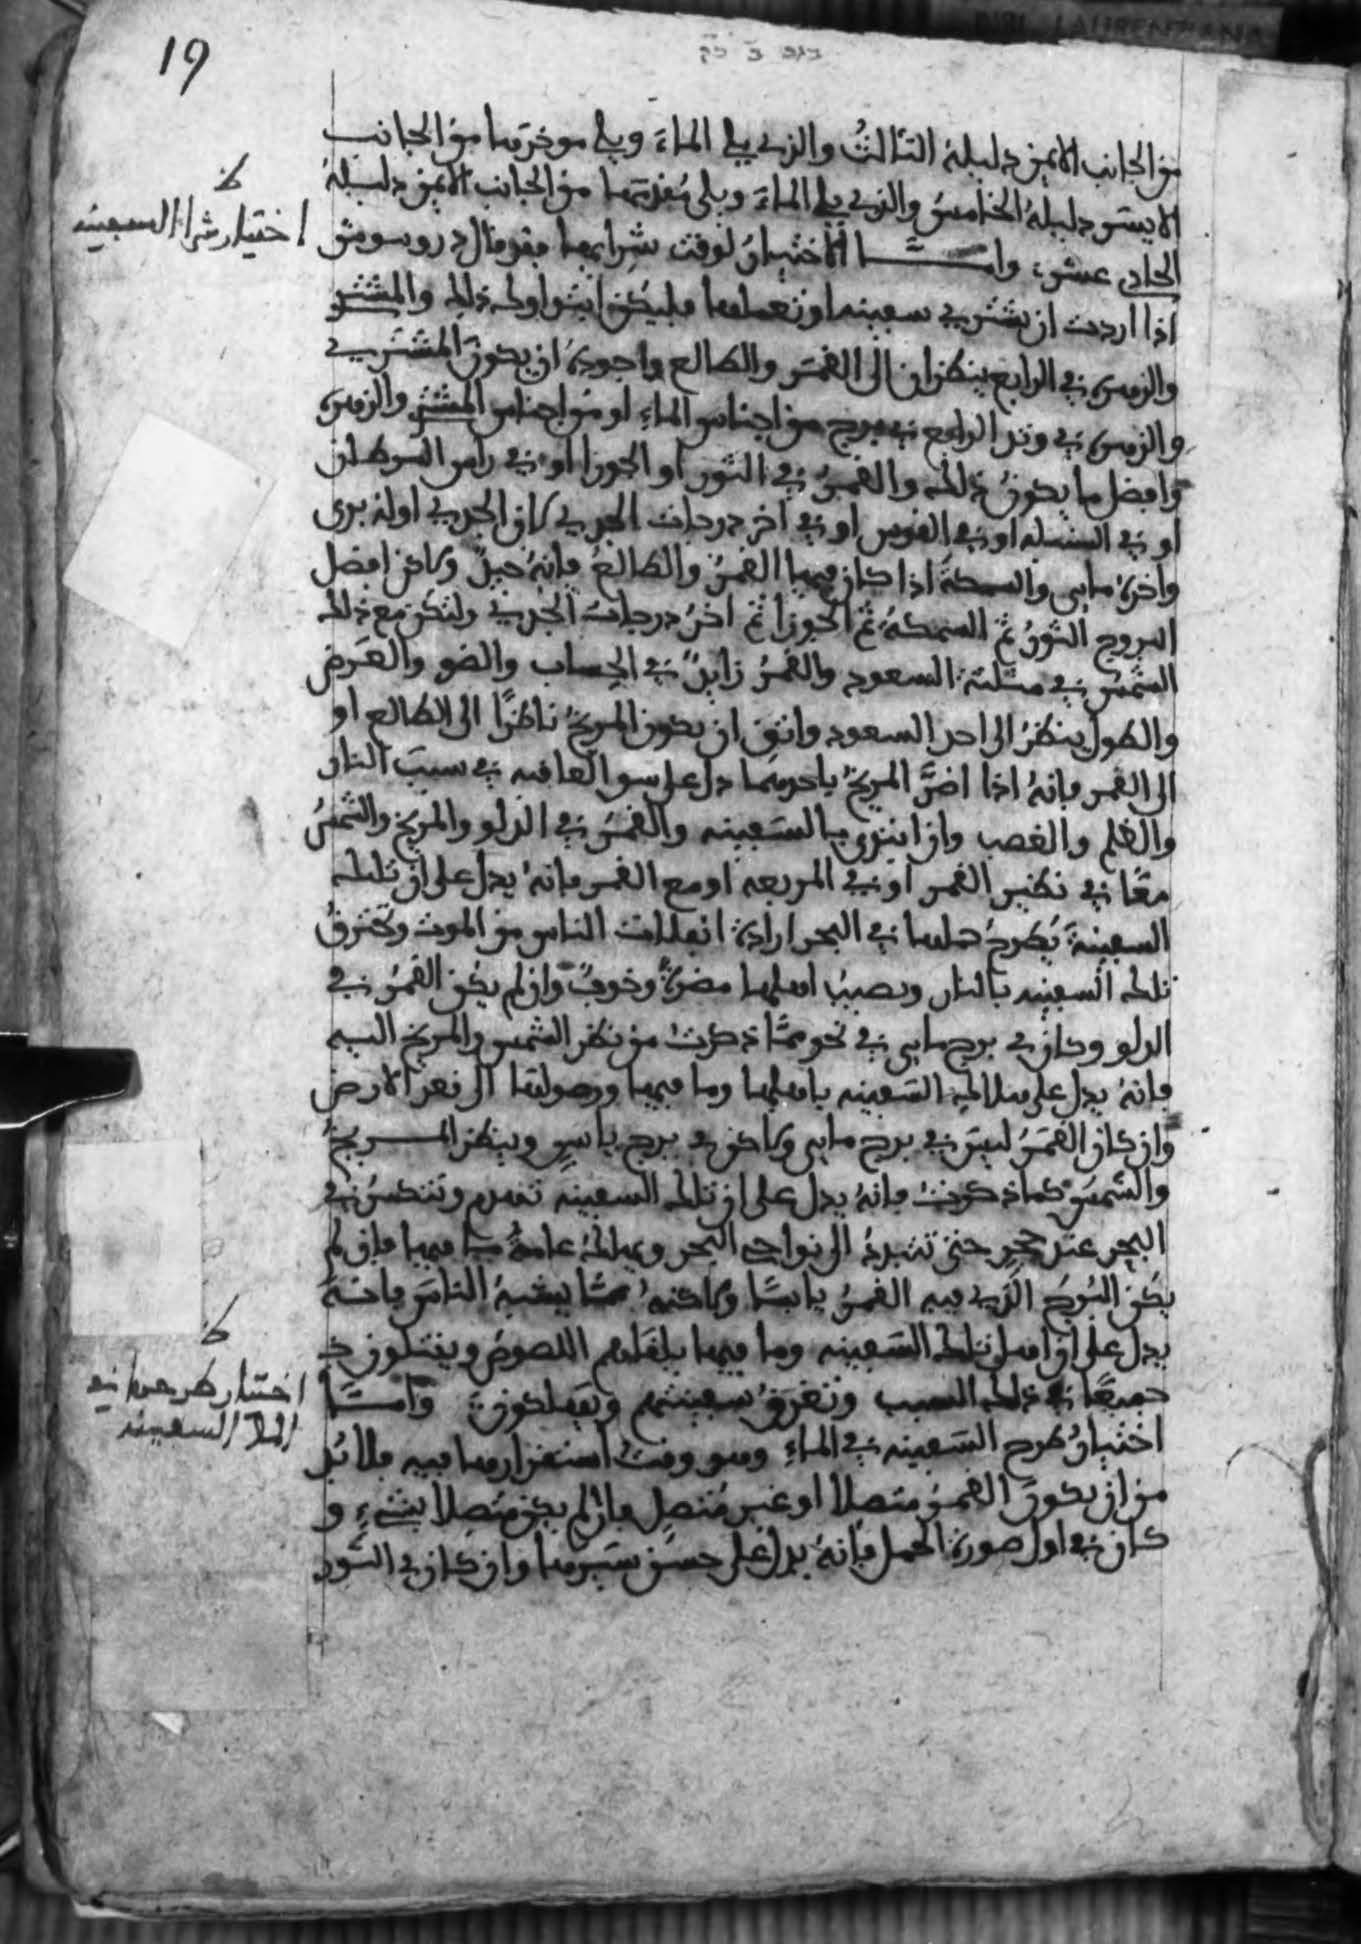 19
من الجانب الايمن دليله الثالثُ والذي يلي الماءَ ويلي موخرَها من الجانب
الايسر دليلهُ الخامسُ والذي يلي الماءَ ويلي مُقدمَها من الجانب الايمن دليلهُ
الحادي عشر، وامّا الاختيارُ لوقت شِرايها فقد قال دروسوش
اختيار شرا السفينه
اذا اردت ان تشتري سفينه او تعملها فليكن ابتداوك ذلك والمشتري
والزهره في الرابع ينظران الى القمر والطالع واجوده ان يكون المشتري
والزهره في وتد الرابع في برج من اجناس الماءِ او من اجناس المشتري والزهره
وافضل ما يكونُ ذلك والقمرُ في الثور او الجوزا او في راس السرطان
او في السنبله او في القوس او في اخر درجات الجدي لان الجدي اوله بري
واخره مايي والسمكةُ اذا كان فيها القمرُ والطالعُ فانهُ جيدٌ ولاكن افضل
البروج الثورُ ثم السمكهُ ثم الجوزا ثم اخرُ درجات الجدي ولتكن مع ذلك
الشمسُ في مثلثه السعود والقمرُ زايدٌ في الحساب والضو والعرض
والطول ينظرُ الى احد السعود واتق ان يكون المريخُ ناظرًا الى الطالع او
الى القمر فانهُ اذا اضرَّ المريخُ باحدهما دل على سو العاقبه في سبب النار
والظلم والغصب وان ابتدي بالسفينه والقمرُ في الدلو والمريخ والشمسُ
معًا في نظير القمر او في المربعه او مع القمر فانهُ يدل على ان تلك
السفينةَ يُطرحُ حملها في البحر اراده انفلات الناس من الموت وتحترقُ
تلك السفينه بالنار ويصيبُ اهلها مضرهٌ وخوفٌ وان لم يكن القمرُ في
الدلو وكان في برج مايي في نحو ممّا ذكرتُ من نظر الشمس والمريخ اليه
فانهُ يدل على هلاك السفينه باهلها وما فيها ووصولها الى قعر الارض
وان كان القمرُ ليس في برج مايي ولاكن في برج يابسٍ وينظر المريخُ
والشمسُ كما ذكرتُ فانهُ يدل على ان تلك السفينه تنهدم وتنكسرُ في
البحر عند حجرٍ حتى تتبدد الى نواحي البحر ويهلك عامةُ ما فيها فان لم
يكن البرجُ الذي فيه القمرُ يابسًا ولاكنهُ ممّا يشبهُ الناس فانهُ
يدل على ان اهل تلك السفينه وما فيها يلقاهم اللصوصُ ويقتتلون
جميعًا في ذلك السبب وتغرقُ سفينتهم ويهلكون، وامّا
اختيار طرحها في
الماء السفينه
اختيارُ طرح السفينه في الماءِ وهو وقتُ استقرارها فيه فلا بُد
من ان يكون القمرُ متصلا او غير مُتصلٍ فان لم يكن مُتصلا بشيءٍ و
كان في اول صوره الحمل فانهُ يدل على حسن سيرها وان كان في الثور